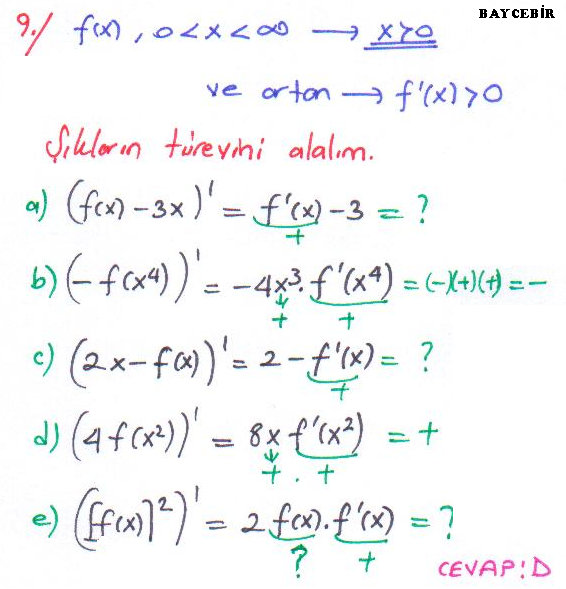 BAYCEBİR
9./ f(x), 0<x<∞ → x>0
ve artan → f'(x)>0
Şıkların türevini alalım.
a) (f(x)-3x)' = f'(x)-3 = ?
+
b) (-f(x⁴))' = -4x³.f'(x⁴) = (-)(+)(+) = -
+ +
c) (2x-f(x))' = 2-f'(x) = ?
+
d) (4f(x²))' = 8x f'(x²) = +
+ . +
e) ([f(x)]²)' = 2f(x).f'(x) = ?
? +
CEVAP:D